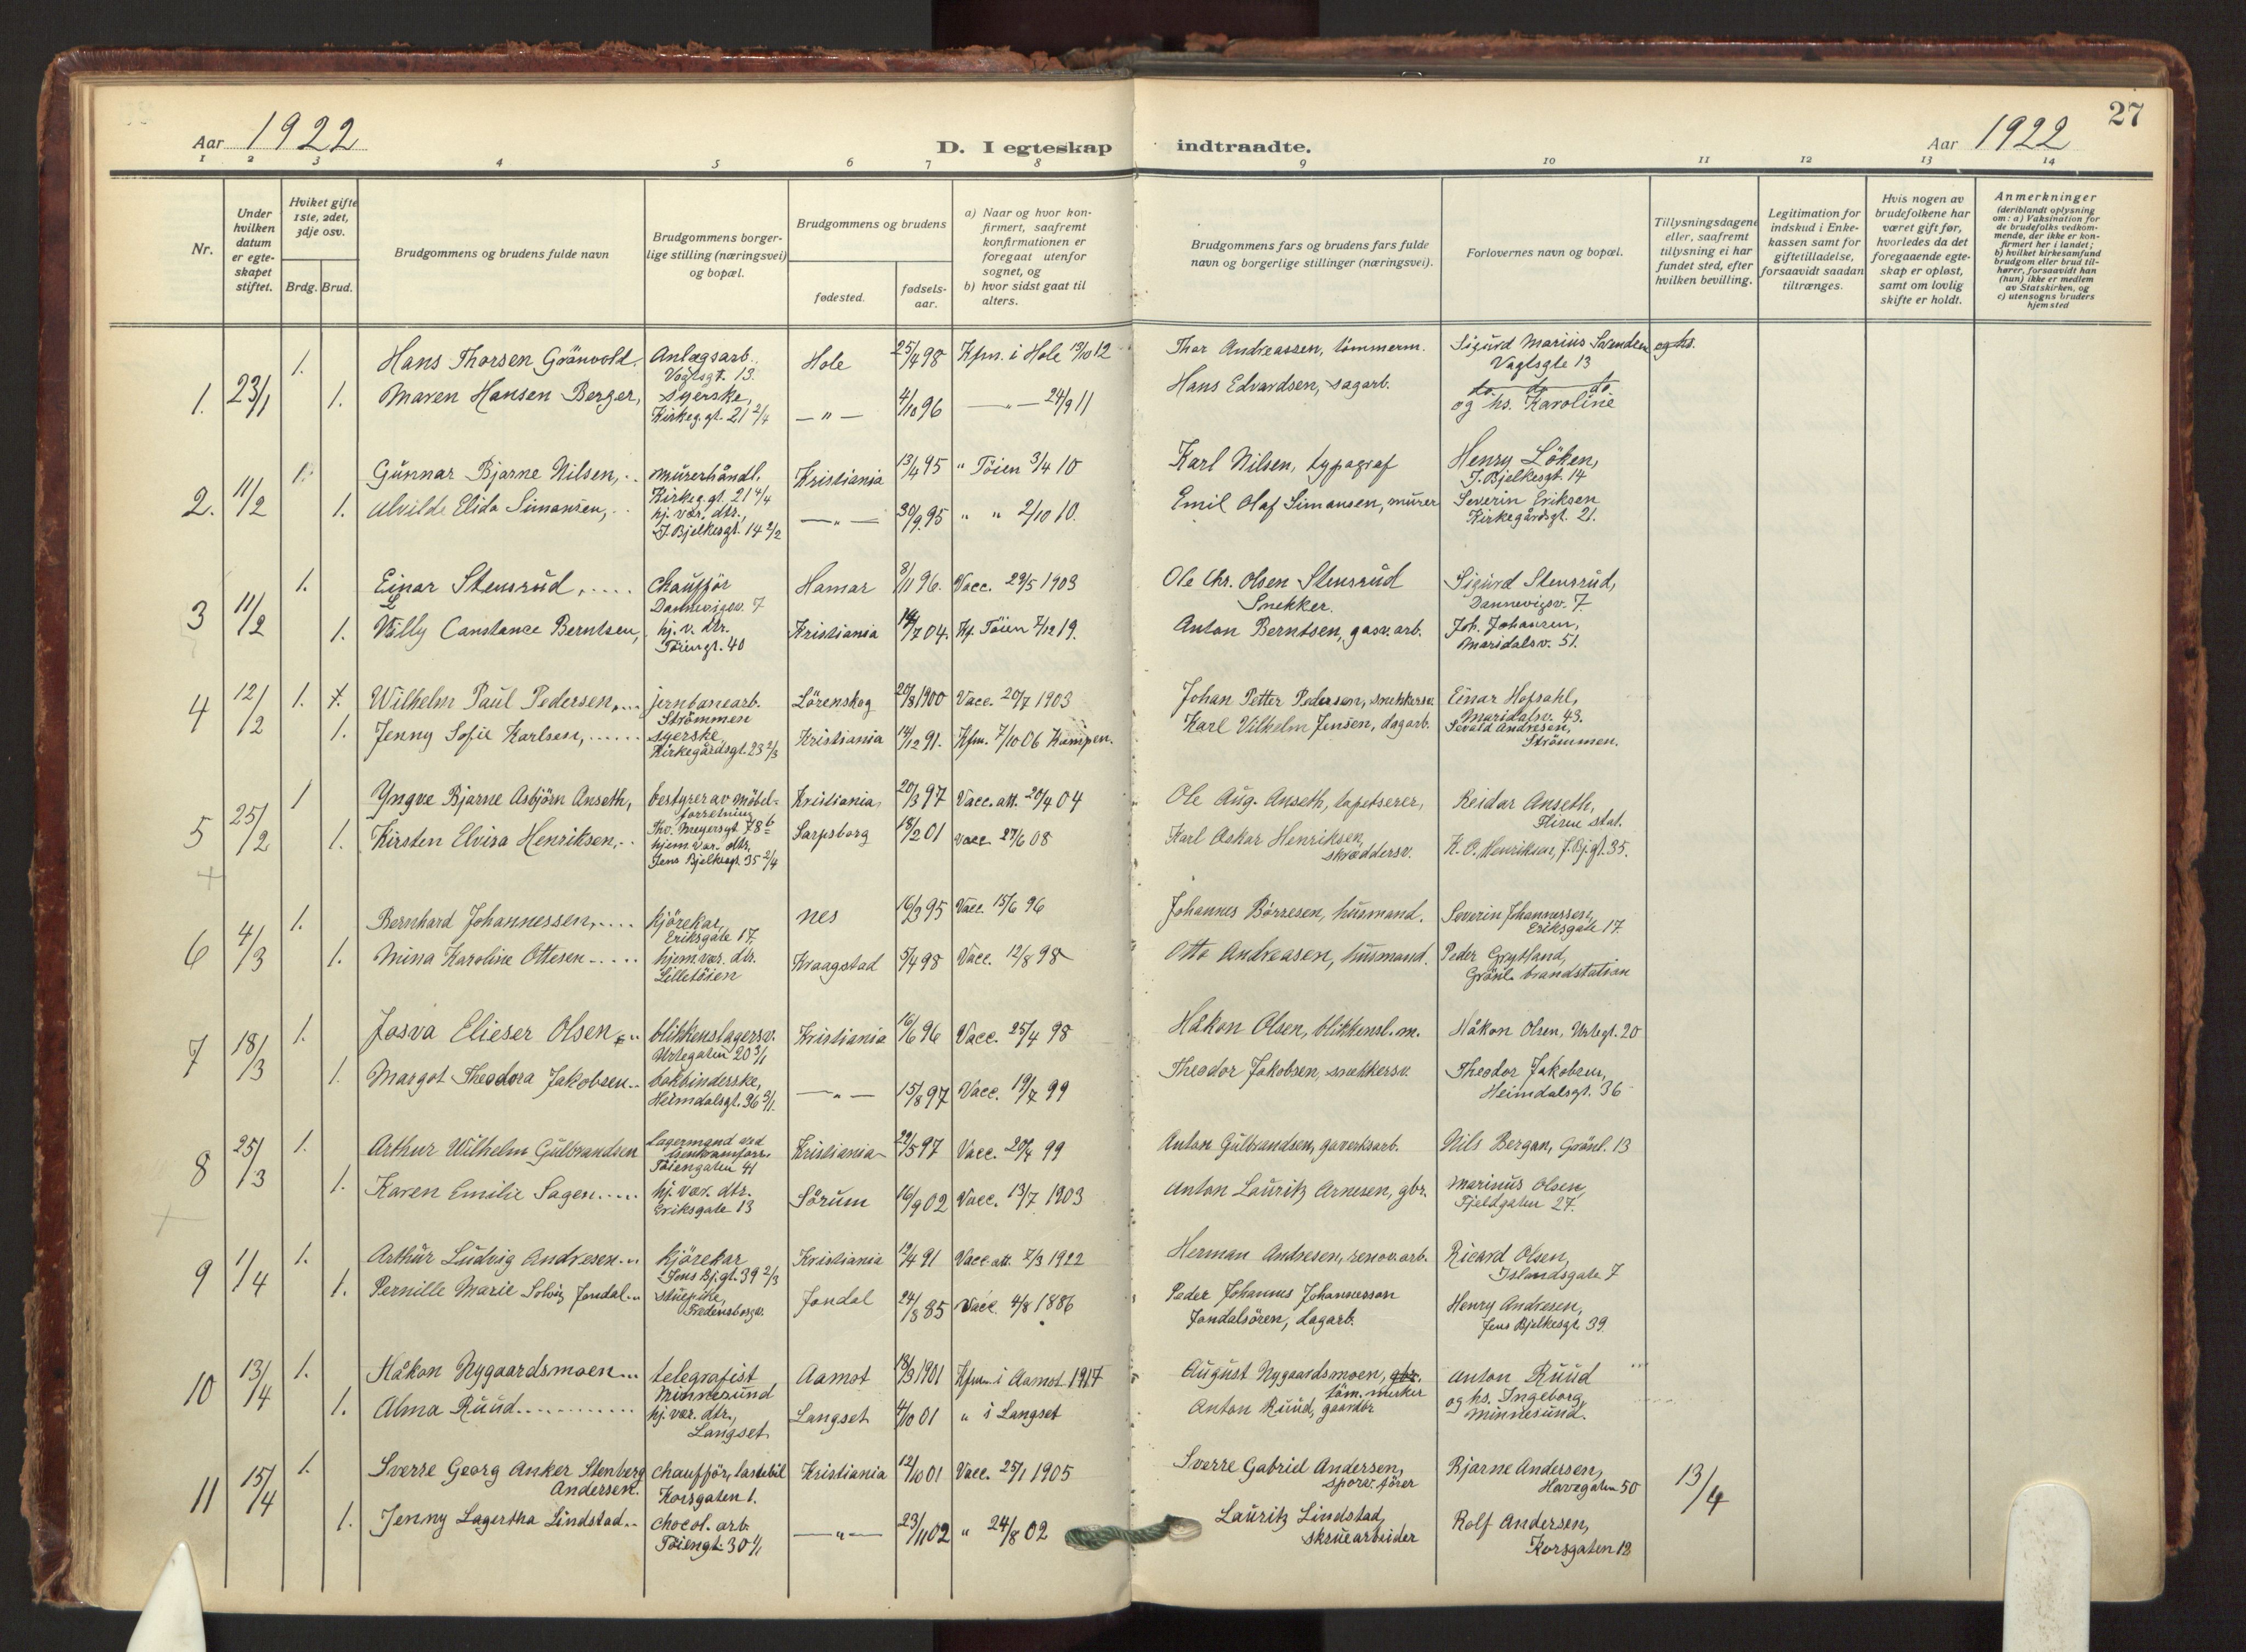 27
Aar 1922
D. I egteskap indtraadte.
Aar 1922
1 2 3 4 5 6 7 8 9 10 11 12 13 14
Nr.
Under hvilken datum er egteskapet stiftet.
Hviket gifte 1ste, 2det, 3dje osv.
Brdg. Brud.
Brudgommens og brudens fulde navn
Brudgommens borgerlige stilling (næringsvei) og bopæl.
Brudgommens og brudens
fødested.
fødselsaar.
a) Naar og hvor konfirmert, saafremt konfirmationen er foregaat utenfor sognet, og
b) hvor sidst gaat til alters.
Brudgommens fars og brudens fars fulde navn og borgerlige stillinger (næringsvei).
Forlovernes navn og bopæl.
Tillysningsdagene eller, saafremt tillysning ei har fundet sted, efter hvilken bevilling.
Legitimation for indskud i Enkekassen samt for giftetilladelse, forsaavidt saadan tiltrænges.
Hvis nogen av brudefolkene har været gift før, hvorledes da det foregaaende egteskap er opløst, samt om lovlig skifte er holdt.
Anmerkninger
(deriblandt oplysning om: a) Vaksination for de brudefolks vedkommende, der ikke er konfirmert her i landet; b) hvilket kirkesamfund brudgom eller brud tilhører, forsaavidt han (hun) ikke er medlem av Statskirken, og c) utensogns bruders hjemsted
1. 23/1 1. Hans Thorsen Grönvold. Anlægsarb. Vogtsgt. 13. Hole 25/4 98 Kfm. i Hole 13/10 12 Thor Andreassen, tömmerm. Sigurd Marius Svendsen og hs. Vogtsgte 13
1. Maren Hansen Berger, Syerske, Kirkeg.gt. 21 2/4 —"— 4/10 96 —"— 24/9 11 Hans Edvardsen, sagarb. do do do og hs. Karoline
2. 11/2 1. Gunnar Bjarne Nilsen, murerhåndl. Kirkeg.gt. 21 4/4 Kristiania 13/4 95 " Töien 3/4 10 Karl Nilsen, typograf Henry Löken, J. Bjelkesgt. 14
1. Alvilde Elida Simonsen, hj. vær. dtr., J. Bjelkesgt. 14 2/2 —"— 30/9 95 " " 2/10 10. Emil Olaf Simonsen, murer Severin Eriksen Kirkegårdsgt. 21.
3 11/2 1. Einar Stensrud, chaufför Dannevigsv. 7 Hamar 8/11 96. Vacc. 29/5 1903 Ole Chr. Olsen Stensrud Snekker. Sigurd Stensrud, Dannevigsv. 7
1. Villy Constance Berntsen, hj. v. dtr. Töiengt. 40 Kristiania 04. Kf. Töien 7/12 19. Anton Berntsen, gasv. arb. Joh. Johansen, Maridalsv. 51.
4 12/2 1. Wilhelm Paul Pedersen, jernbanearb. Strömmen Lörenskog 20/8 1900 Vacc. 20/7 1903 Johan Petter Pedersen, snekkersv. Einar Hofsahl, Maridalsv. 43.
1. Jenny Sofie Karlsen, syerske Kirkegårdsgt. 23 2/3 Kristiania 14/12 91. Kfm. 7/10 06 Kampen. Karl Vilhelm Jensen, dagarb. Sevald Andresen, Strömmen.
5 25/2 1 Yngve Bjarne Asbjörn Anseth, bestyrer av möbelforretning Thv. Meyersgt. 78 Kristiania 20/3 97 Vacc. att. 20/4 04 Ole Aug. Anseth, tapetserer, Reidar Anseth, Flisen stat.
1. Kirsten Elvira Henriksen, hjem vær. dtr. Jens Bjelkesgt. 35 2/4 Sarpsborg 18/2 01 Vacc. 27/6 08 Karl Oskar Henriksen, skræddersv. K. O. Henriksen, J. Bj.gt. 35.
6 4/3 1. Bernhard Johannessen, kjörekar, Eriksgate 17, Nes 16/3 95 Vacc. 15/6 96 Johannes Börresen, husmand. Severin Johannessen, Eriksgate 17.
1. Mina Karoline Ottesen hjem vær. dtr. Lilletöien Kraagstad 5/4 98 Vacc. 12/8 98 Otto Andreasen, husmand. Peder Grytland, Grönl. brandstation
7 18/3 1. Josva Elieser Olsen blikkenslagersv. Urtegaten 20 3/1 Kristiania 16/6 96 Vacc. 25/4 98 Håkon Olsen, blikkensl. m. Håkon Olsen, Urtegt. 20
1. Margot Theodora Jakobsen bokbinderske, Heimdalsgt. 36 3/1. —"— 15/8 97 Vacc. 19/7 99 Theodor Jakobsen, snekkersv. Theodor Jakobsen, Heimdalsgt. 36
8 25/3 1. Arthur Wilhelm Gulbrandsen Lagermand ved Töiengaten 41 Kristiania 22/5 97 Vacc. 20/4 99 Anton Gulbrandsen, gaverksarb. Nils Bergan, Grönl. 13
1. Karen Emilie Sagen hj. vær. dtr. Eriksgate 13 Sörum 16/9 02 Vacc. 13/7 1903 Anton Lauritz Arnesen, gbr. Marinus Olsen, Fjeldgaten 27.
9 1/4 1. Arthur Ludvig Andresen kjörekar Jens Bj.gt. 39 2/3 Kristiania 12/4 91 Vacc. att. 7/3 1922 Herman Andresen, renov. arb. Ricard Olsen, Islandsgate 7
1. Pernille Marie Solvig Jondal stuepike, Fredensborgv. Jondal 24/8 85 Vacc. 4/8 1886 Peder Johannes Johannesson Jondalsören, dagarb. Henry Andresen, Jens Bjelkesgt. 39.
10 13/4 1. Håkon Nygaardsmoen telegrafist Minnesund Aamot 18/3 1901 Kfm. i Aamot 1917 August Nygaardsmoen, gbr. töm. merker Anton Ruud og hs. Ingeborg, Minnesund.
1. Alma Ruud hj. vær. dtr., Langset Langset 4/10 01 " i Langset Anton Ruud, gaardbr
11 15/4 1. Sverre Georg Anker Stenberg Andersen. chaufför, lastebil Korsgaten 1. Kristiania 12/10 01 Vacc. 25/1 1905 Sverre Gabriel Andersen, sporv. förer Bjarne Andersen, Havegaten 50 13/4
1. Jenny Lagertha Lindstad chocol. arb. Töiengt. 30 1/1 —"— 23/11 02 " 24/8 02 Lauritz Lindstad, skruearbeider Rolf Andersen, Korsgaten 12